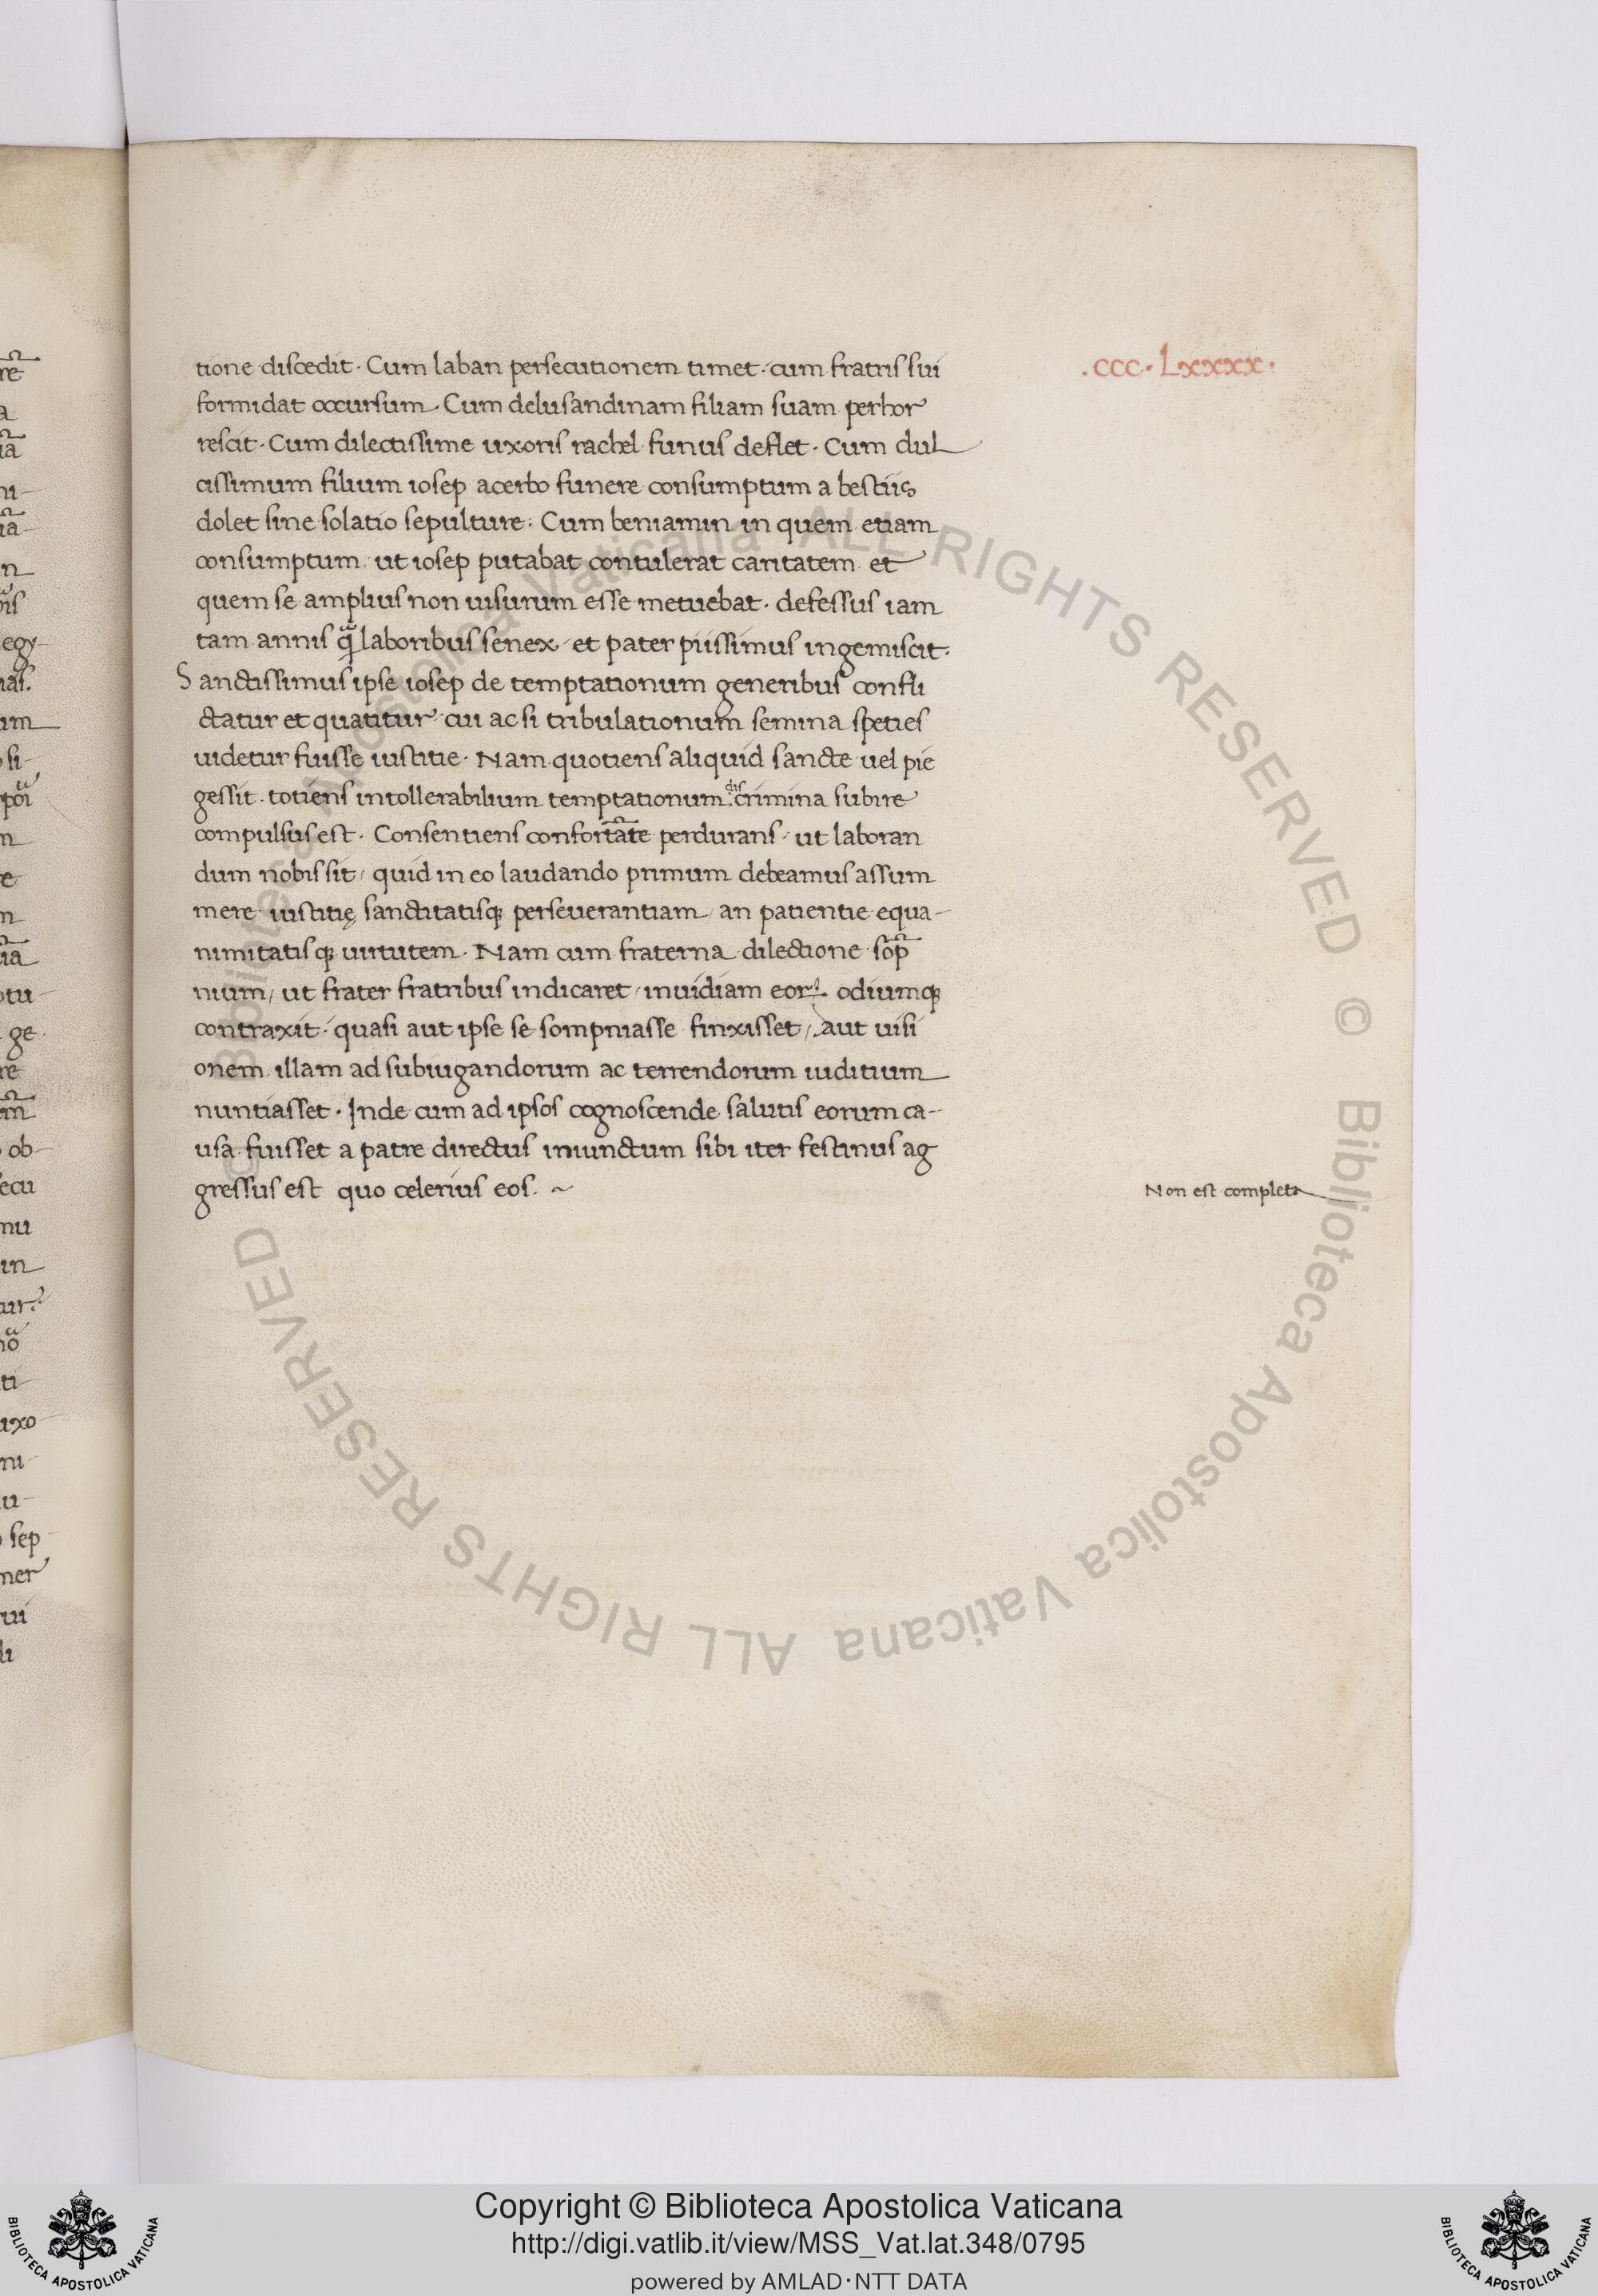 .ccc.Lxxxx.
tione discedit. Cum laban persecutionem timet. cum fratris sui
formidat occursum. Cum delusandinam filiam suam perhor
rescit. Cum dilectissime uxoris rachel funus deflet. Cum dul
cissimum filium iosep acerbo funere consumptum a bestiis
dolet sine solatio sepulture: Cum beniamin in quem etiam
consumptum ut iosep putabat contulerat caritatem et
quem se amplius non uisurum esse metuebat. defessus iam
tam annis qͣ laboribus senex et pater piissimus ingemiscit.
Sanctissimus ipse iosep de temptationum generibus confli
ctatur et quatitur cui ac si tribulationum semina speties
uidetur fuisse iustitie. Nam quotiens aliquid sancte uel pie
gessit. totiens intollerabilium temptationum discrimina subire
compulsus est. Consentiens confortāte perdurans. ut laboran
dum nobis sit, quid in eo laudando primum debeamus assum
mere iustitię sanctitatisq; perseuerantiam, an patientie equa-
nimitatisq; uirtutem. Nam cum fraterna dilectione sop̄
nium, ut frater fratribus indicaret, inuidiam eoꝝ odiumq;
contraxit. quasi aut ipse se sompniasse finxisset, aut uisi
onem illam ad subiugandorum ac terrendorum iuditium
nuntiasset. Inde cum ad ipsos cognoscende salutis eorum ca-
usa fuisset a patre directus iniunctum sibi iter festinus ag
gressus est quo celerius eos. ~
Non est completa
© Biblioteca Apostolica Vaticana ALL RIGHTS RESERVED © Biblioteca Apostolica Vaticana ALL RIGHTS RESERVED
Copyright © Biblioteca Apostolica Vaticana
http://digi.vatlib.it/view/MSS_Vat.lat.348/0795
powered by AMLAD·NTT DATA
BIBLIOTECA APOSTOLICA VATICANA
BIBLIOTECA APOSTOLICA VATICANA